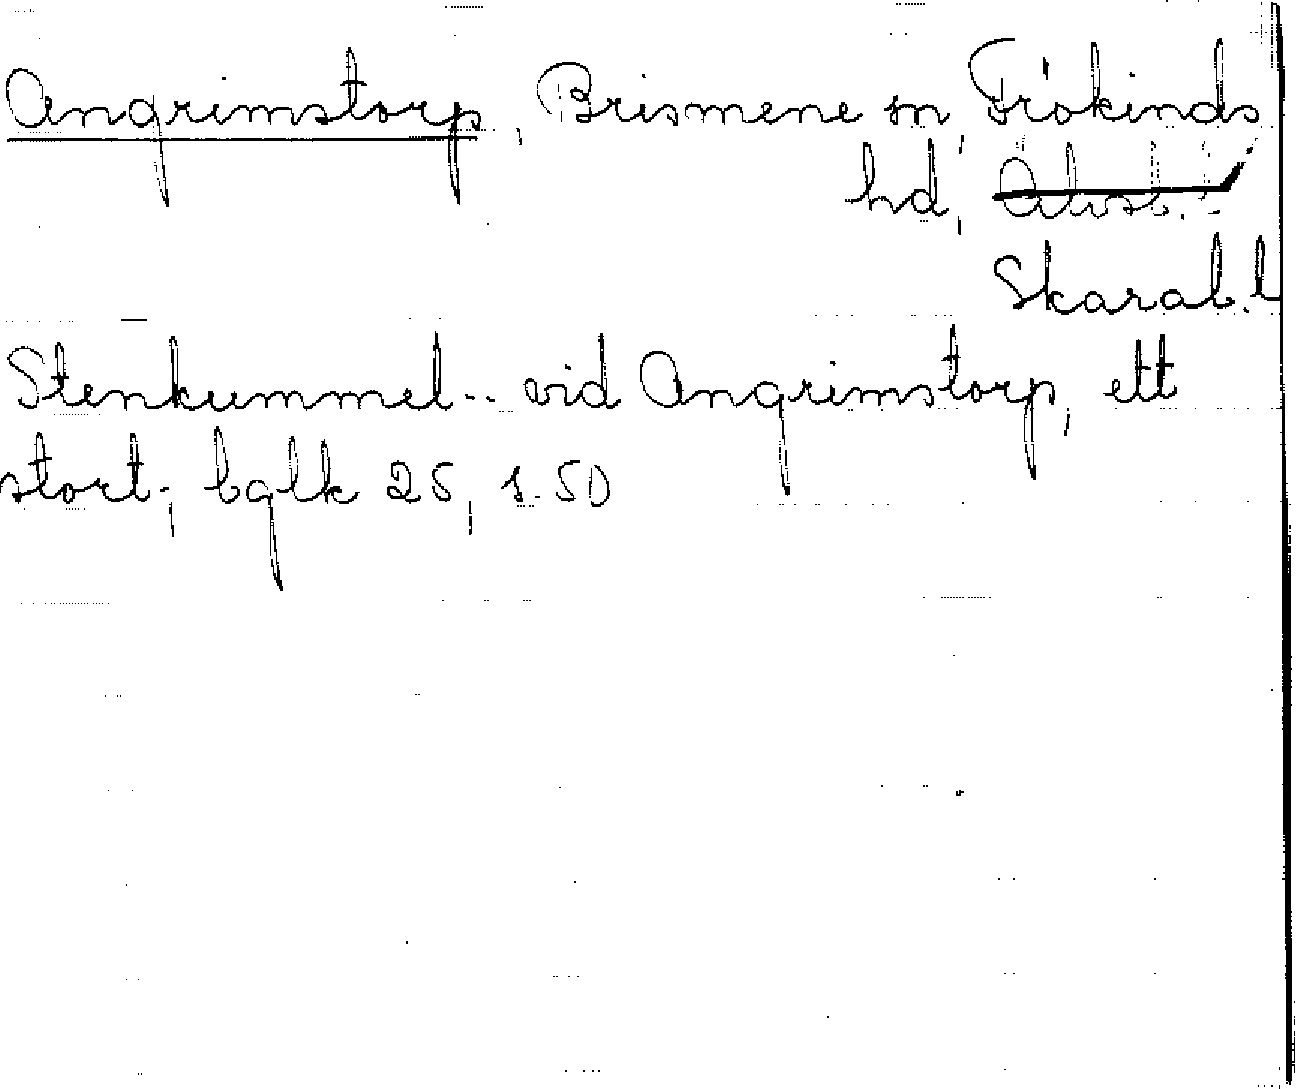 Angrimstorp, Brismene sn, Frökinds
hd, Älvsb. l
Skarab. l
Stenkummel .. vid Angrimstorp, ett
stort; bglk 25, s. 50